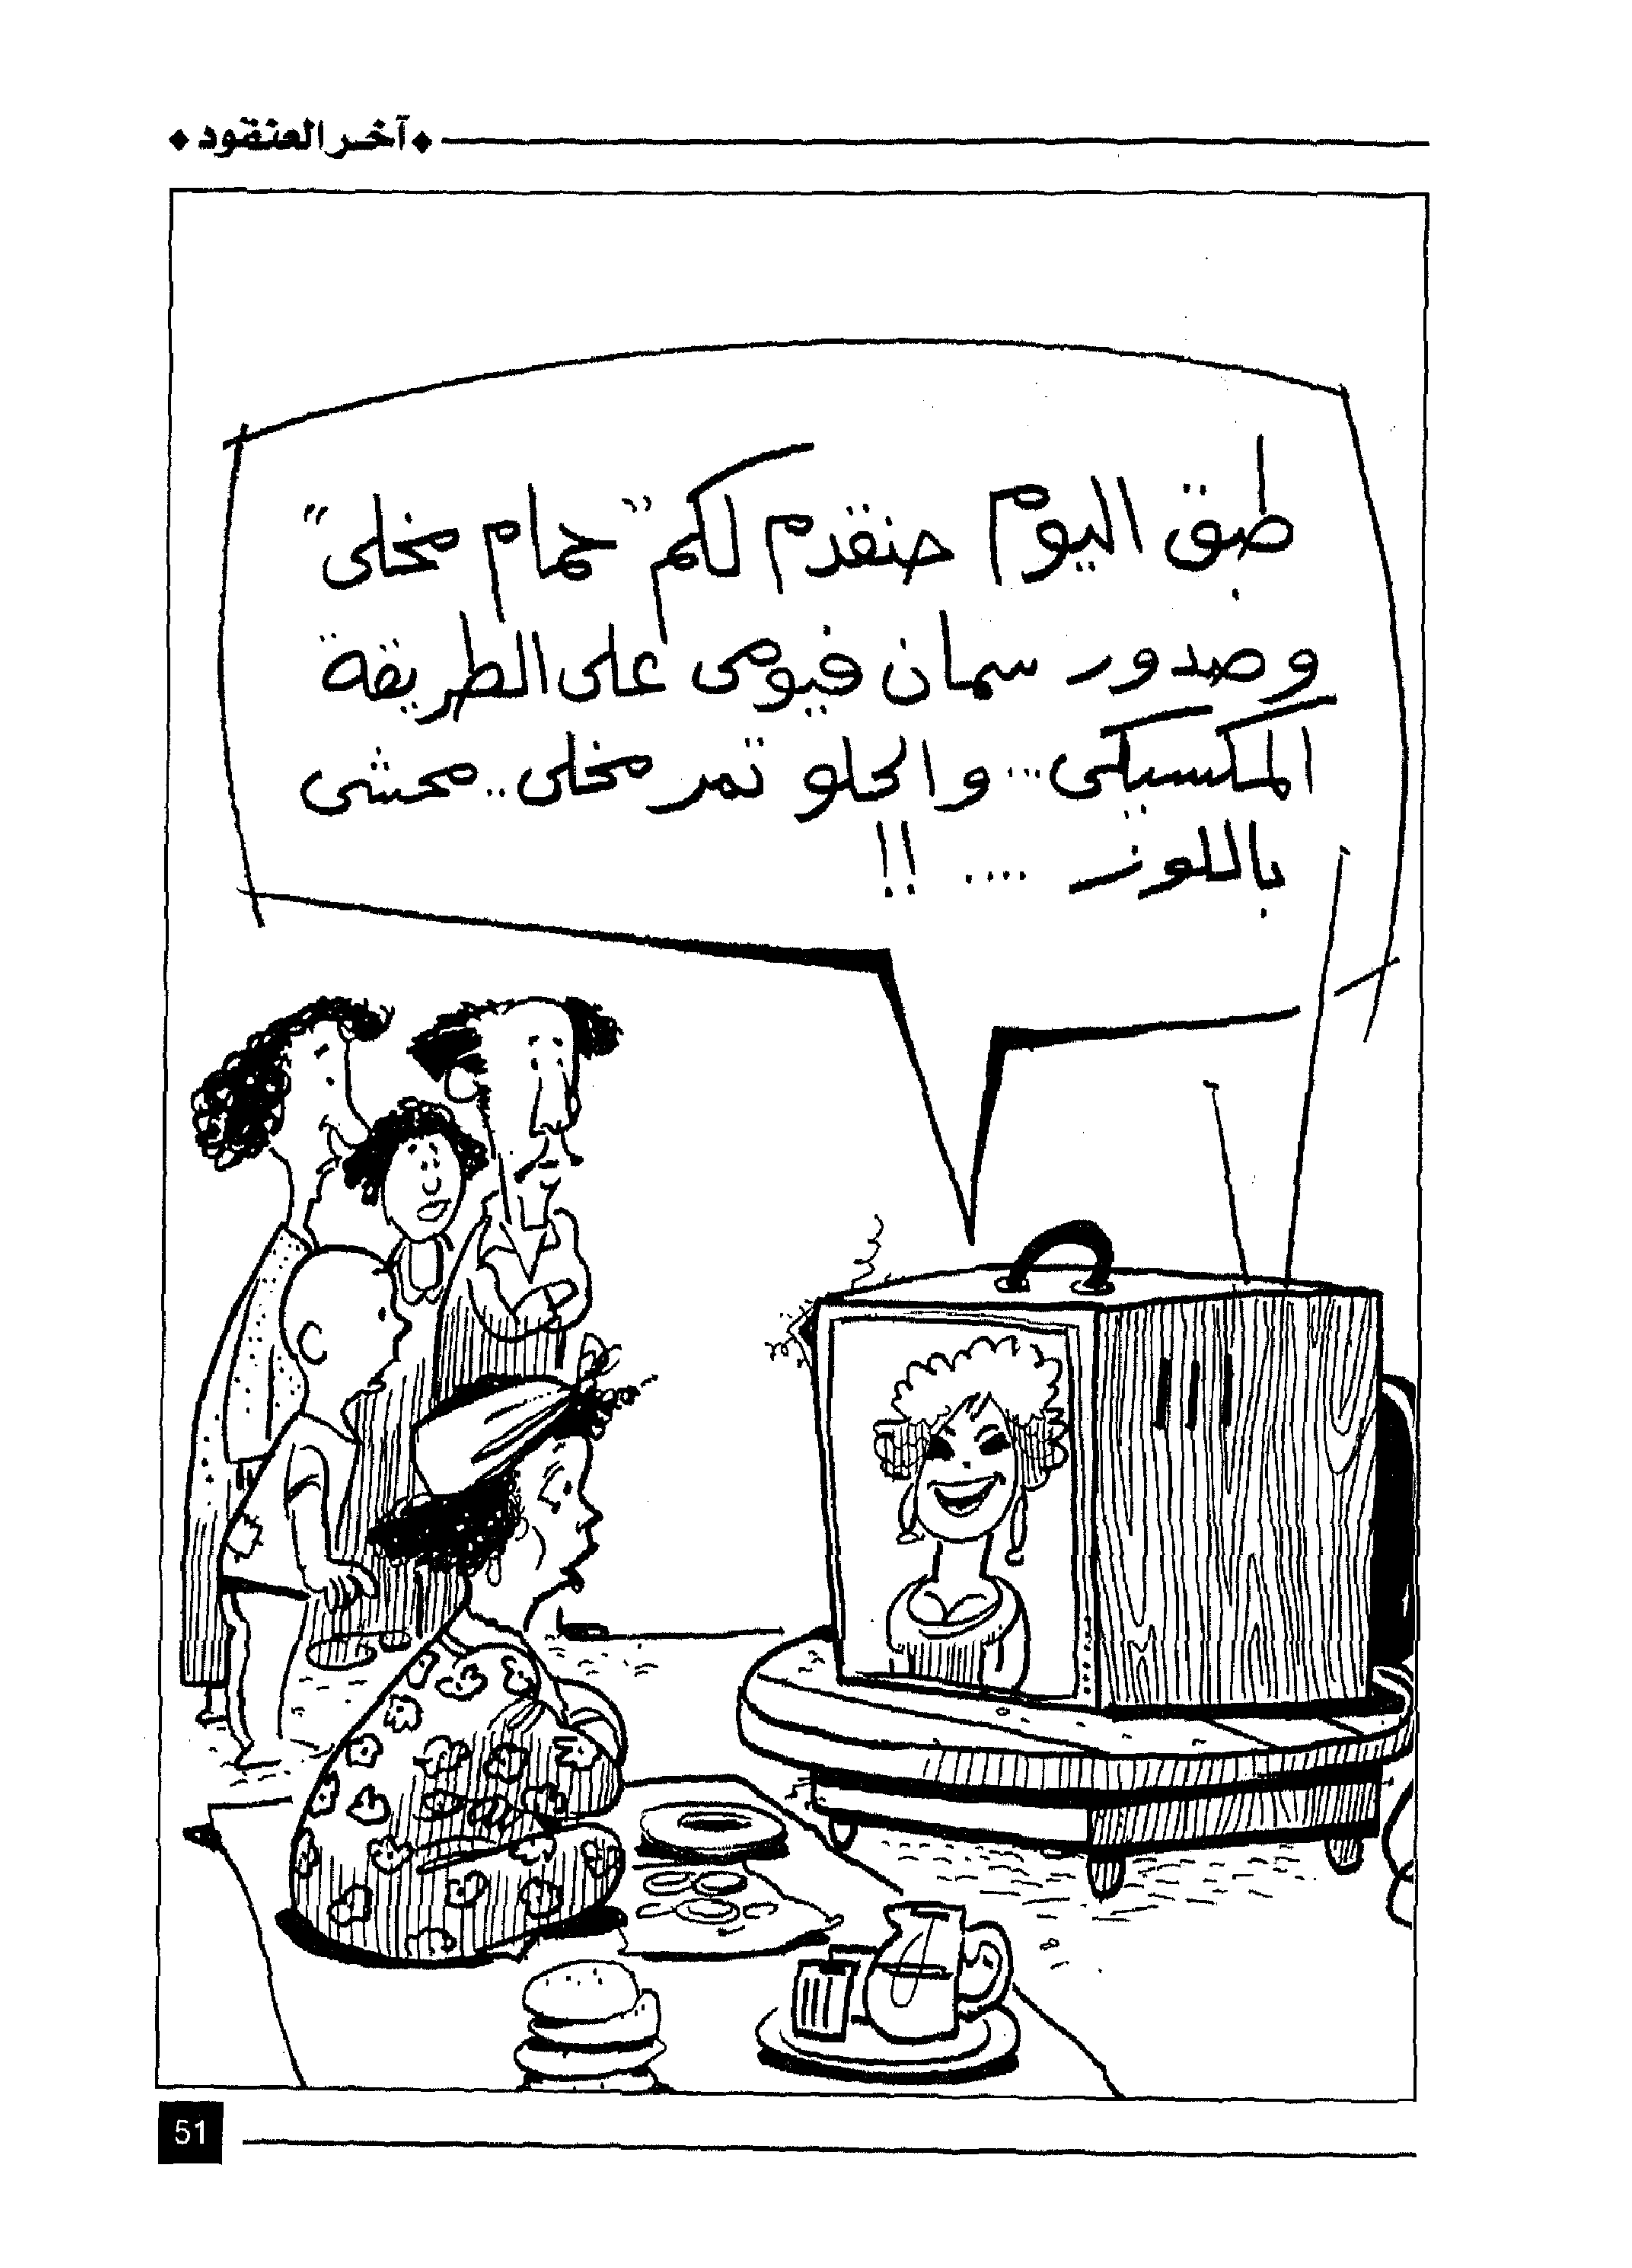 آخر العنقود
طبق اليوم حنقدم لكم "حمام مخلى"
وصدور سمان فيومى على الطريقة
المكسيكى... والحلو تمر مخلى.. محشى
باللوز .... !!
51